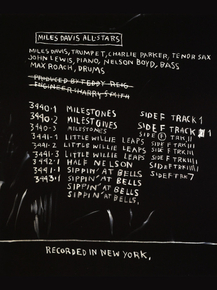 MILES DAVIS ALL-STARS
MILES DAVIS, TRUMPET, CHARLIE PARKER, TENOR SAX
JOHN LEWIS, PIANO, NELSON BOYD, BASS
MAX ROACH, DRUMS
PRODUCED BY TEDDY REIG
ENGINEER HARRY SMITH
3440-1 MILESTONES SIDE F TRACK 1
3440-2 MILESTONES SIDE F TRACK
3440-3 MILESTONES
3441-1 LITTLE WILLIE LEAPS
3441-2 LITTLE WILLIE LEAPS
3441-3 LITTLE WILLIE LEAPS
3442-1 HALF NELSON
3443-1 SIPPIN' AT BELLS
SIPPIN' AT BELLS
SIPPIN' AT BELLS
SIPPIN' AT BELLS,
RECORDED IN NEW YORK,